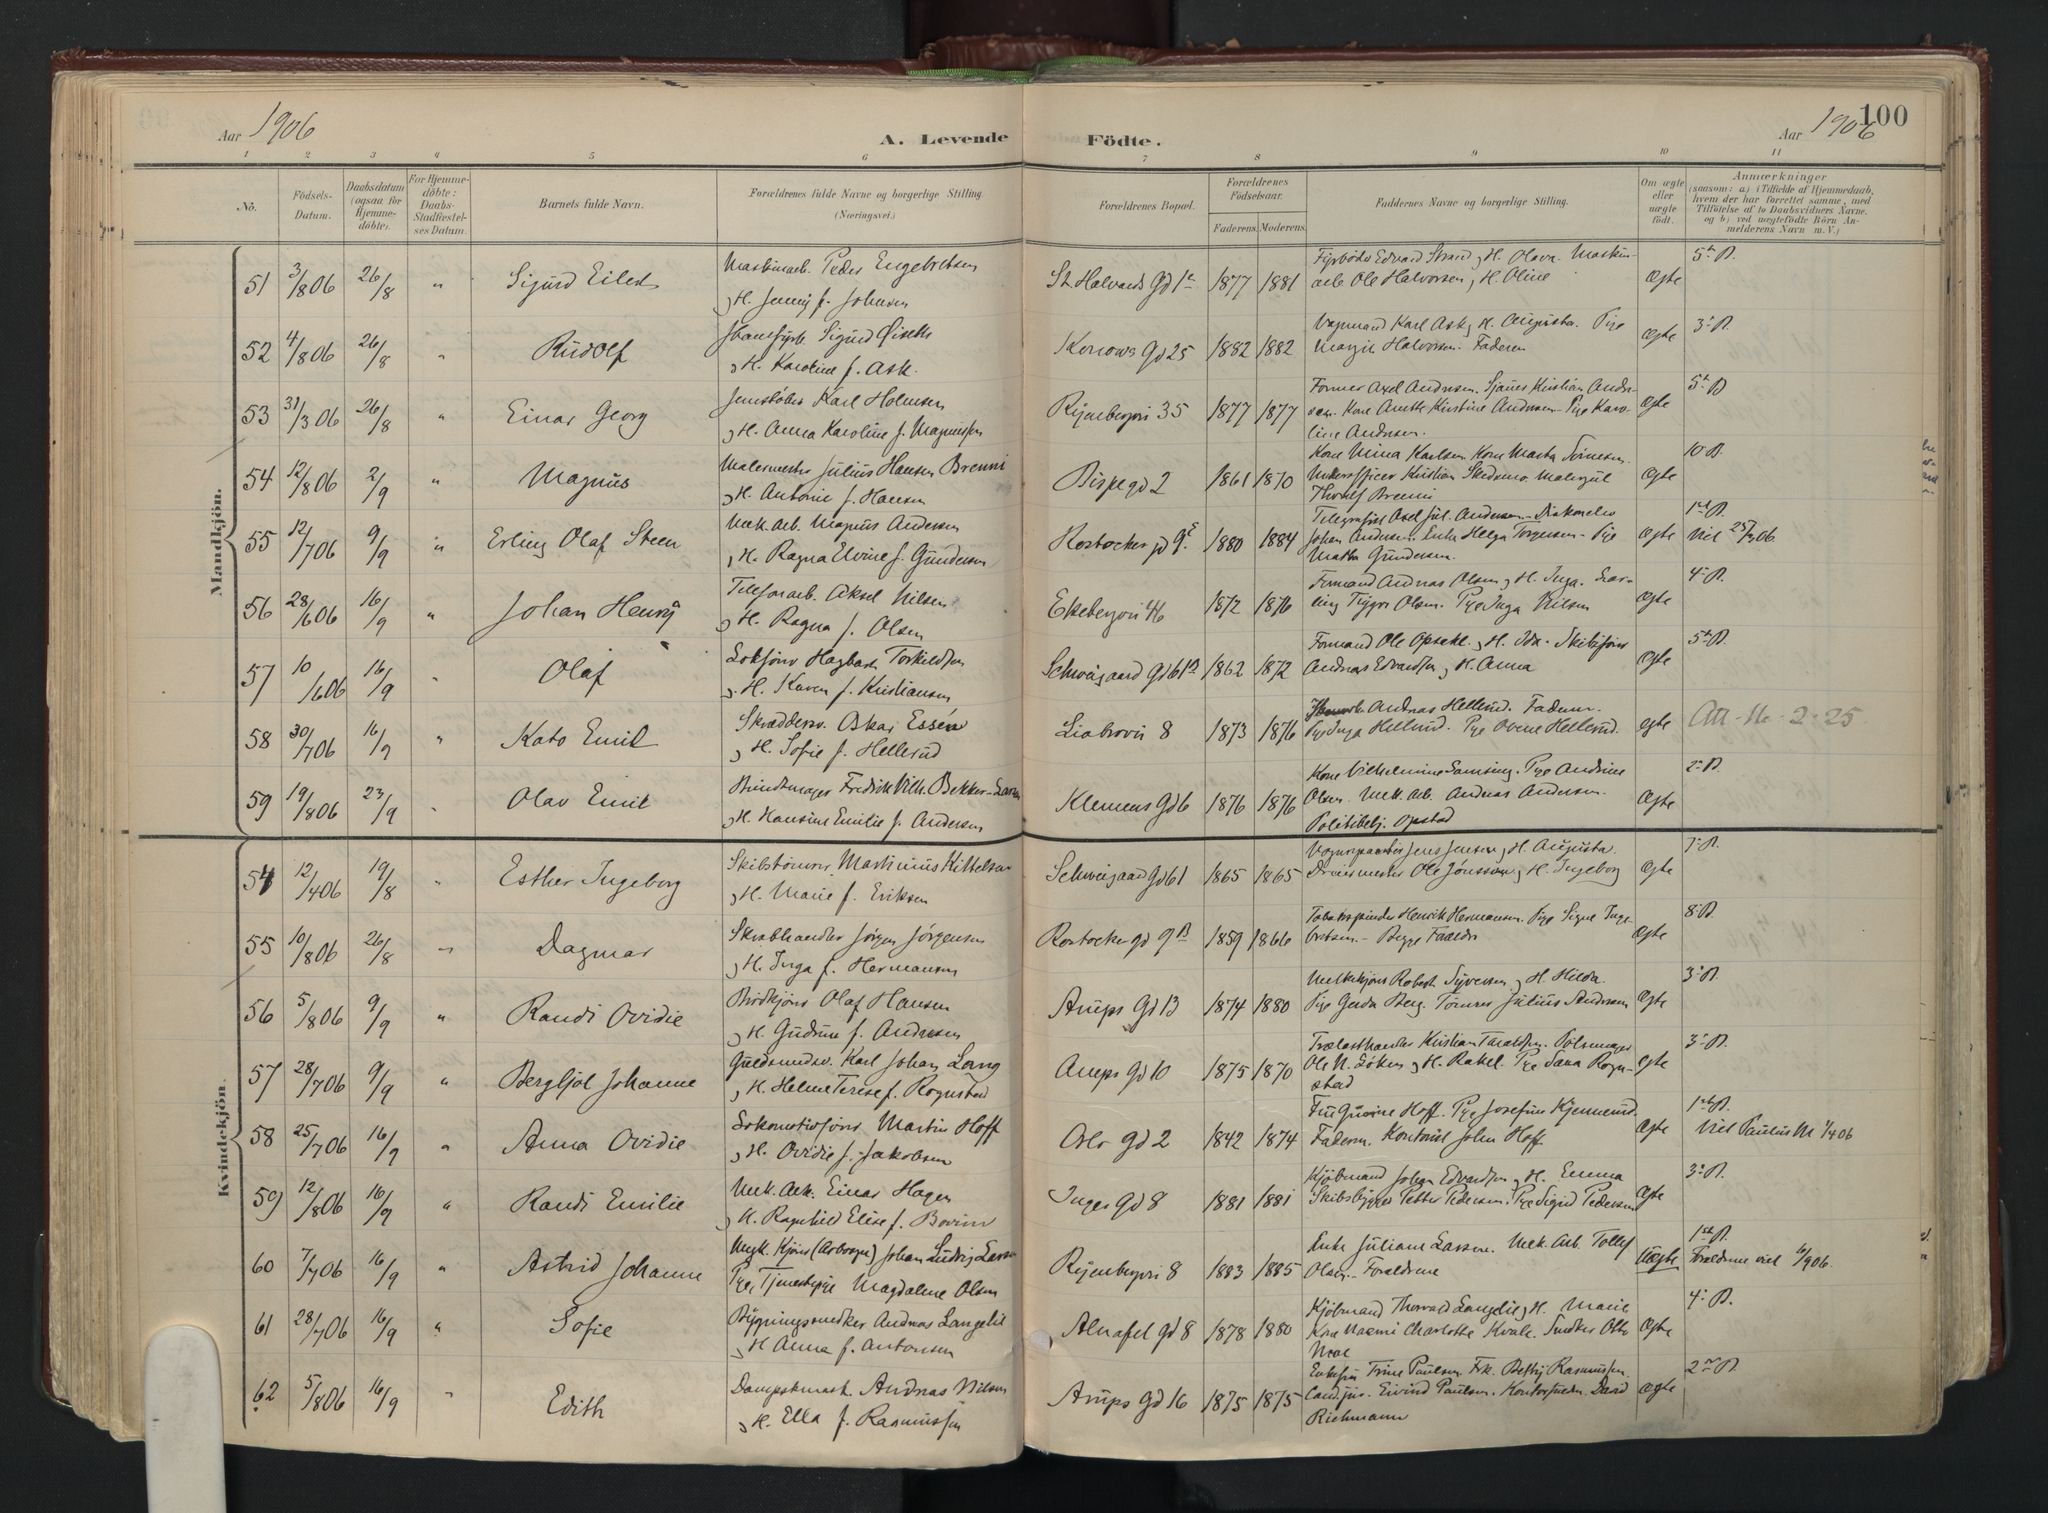 Aar 1906
A. Levende
Födte.
Aar 1906
100
1 2 3 4 5 6 7 8 9 10 11
No.
Födsels-
Datum.
Daabsdatum
(ogsaa for
Hjemme-
döbte).
For Hjemme-
döbte:
Daabs-
Stadfæstel-
ses Datum.
Barnets fulde Navn.
Forældrenes fulde Navne og borgerlige Stilling.
(Næringsvei.)
Forældrenes Bopæl.
Forældrenes
Födselsaar.
Faderens. Moderens.
Faddernes Navne og borgerlige Stilling.
Om ægte
eller
uægte
födt.
Anmærkninger
(saasom: a) i Tilfælde af Hjemmedaab,
hvem der har forrettet samme, med
Tilföielse af to Daabsvidners Navne.
og b) ved uægtefödte Börn An-
melderens Navn m.V.)
Mandkjön.
51 3/806 26/8 " Sigurd Eilert
Maskinarb. Peder Engebretsen
og H. Jenny f. Johnsen
St Halvards Gd 1c 1877 1881
Fyrböder Edvard Strand og H. Olava. Maskin-
arb Ole Halvorsen og H. Oline
Ægte 5te B.
52 4/806 26/8 " Rudolf
Sigurd Öiseth
og H. Karoline f. Ask.
Konows Gd 25 1882 1882
Vognmand Karl Ask og H. Augusta. Pige
Margit Halvorsen. Faderen
Ægte 3' B.
53 31/306 26/8 " Einar Georg
Jernstöber Karl Holmsen
og H. Anna Karoline f. Magnussen
Ryenbergvei 35 1877 1877
Former Axel Andersen. Sjauer Kristian Ander-
sen. Kone Anethe Kirstine Andersen. Pige Karo-
line Andersen.
Ægte 5te B
54 12/806 2/9 " Magnus
Malermester Julius Hansen Brenni
og H. Antonie f. Hansen
Bispegd 2 1861 1870
Kone Mina Karlsen Kone Martha
Underofficer Kristian Skedsmo. Malersv
Thorolf Brenni
Ægte 10 B.
55 12/706 9/9 " Erling Olaf Steen
Mek. Arb. Magnus Andersen
og H. Ragna Elvine f. Gundersen
Rostocker gd 9E 1880 1884
Telegrafist Axel Jul. Andersen. Diakonelev
Johan Andersen. Enke Helga Torgersen. Pige
Martha Gundersen.
Ægte 1ste B.
Viet
56 28/606 16/9 " Johan Henry
Telefonarb. Aksel Nilsen
og H. Ragna f. Olsen
Ekebergvei 46 1872 1876
Formand Andreas Olsen og H. Inga.
Olsen. Pige Inga Nilsen
Ægte 4' B.
57 10/606 16/9 " Olaf
Lokförer Hagbart Torkildsen
og H. Karen f. Kristiansen
Schweigaard Gd 61B 1862 1872
Formand Ole Opsahl og H. Ida. Skibsförer
Andreas Edvardsen og H. Anna
Ægte 5te B.
58 30/706 16/9 " Kato Emil
Skræddersv. Oskar Essén
og H. Sofie f. Hellerud
Liabrovei 8 1873 1876
Andreas Hellerud. Faderen.
Pige Inga Hellerud. Pige Ovine Hellerud.
Ægte Att-Nr-2-25
59 19/806 23/9 " Olav Emil
Buntmager Fredrik Vilh. Bekker-Larsen
og H. Hansine Emilie f. Andersen
Klemens Gd 6 1876 1876
Kone Vilhelmine Samsing. Pige Andrine
Olsen. Mek Arb. Andreas Andersen.
Politibetj. Opstad
Ægte 2' B.
Kvindekjön.
54 12/406 19/8 " Esther Ingeborg
Skibstömrer Martinius Kittelsen
og H. Marie f. Eriksen
Schweigaard Gd 61 1865 1865
Jens Jensen og H. Augusta
Ole Jönsson og H. Ingeborg
Ægte 7' B.
55 10/806 26/8 " Dagmar
Skrabhandler Jörgen Jörgensen
og H. Inga f. Hermansen
Rostocker gd 9B 1859 1866
Tobakspinder Henrik Hermansen. Pige Signe Inge-
britsen. Begge Forældre
Ægte 8' B.
56 5/806 9/9 " Randi Ovidie
Brödkjörer Olaf Hansen
og H. Gudrun f. Andersen
Arups Gd 13 1874 1880
Melkekjörer Robert Syversen og H. Hilda.
Pige Gerda Berg. Tömrer Julius Andersen
Ægte 3' B.
57 28/706 9/9 " Bergljot Johanne
Guldsmedsv. Karl Johan Lang
og H. Helene Terese f. Rognstad
Arups Gd 10 1875 1870
Trælasthandler Kristian Taraldsen. Pölsemager
Ole N. Löken og H. Rakel. Pige Sara Rogn-
stad
Ægte 3' B.
58 25/706 16/9 " Anna Ovidie
Lokomotivförer Martin Hoff
og H. Ovidie f. Jakobsen
Oslo Gd 2 1842 1874
Fru Gusine Hoff. Pige Josefine Kjennerud.
Faderen. Kontorist John Hoff
Ægte 1ste B.
Viet Paulus M 1/406
59 12/806 16/9 " Randi Emilie
Mek. Arb. Einar Hagen
og H. Ragnhild Elise f. Bovim
Inges Gd 8 1881 1881
Kjöbmand Johan Edvardsen og H. Emma
Skibsbygger Petter Pedersen. Pige Sigrid Pedersen
Ægte 3' B.
60 7/706 16/9 " Astrid Johanne
Melk. Kjörer (Arbvogn) Johan Ludvig Larsen
Pige, Tjenestepige Magdalene Olsen
Ryenbergvei 8 1883 1885
Enke Juliane Larsen. Mek. Arb. Tollef
Olsen. Forældrene
Uægte 1ste B.
Forældrene viet 6/906.
61 28/706 16/9 " Sofie
Bygningssnedker Andreas Langelid
og H Anna f. Antonsen
Alnafet gd 8 1878 1880
Kjöbmand Thorvald Langelie og H. Marie
Kone Naemi Charlotte Kvale. Snedker Otto
Moe
Ægte 4' B.
62 5/806 16/9 " Edith
Dampskmask. Andreas Nilsen
og H. Ella f. Rasmussen
Arups Gd 16 1875 1875
Enkefru Trine Paulsen. Frk. Betty Rasmussen.
Cand. jur. Eivind Paulsen. Kontorfuldm. David
Richmann
Ægte 2' B.